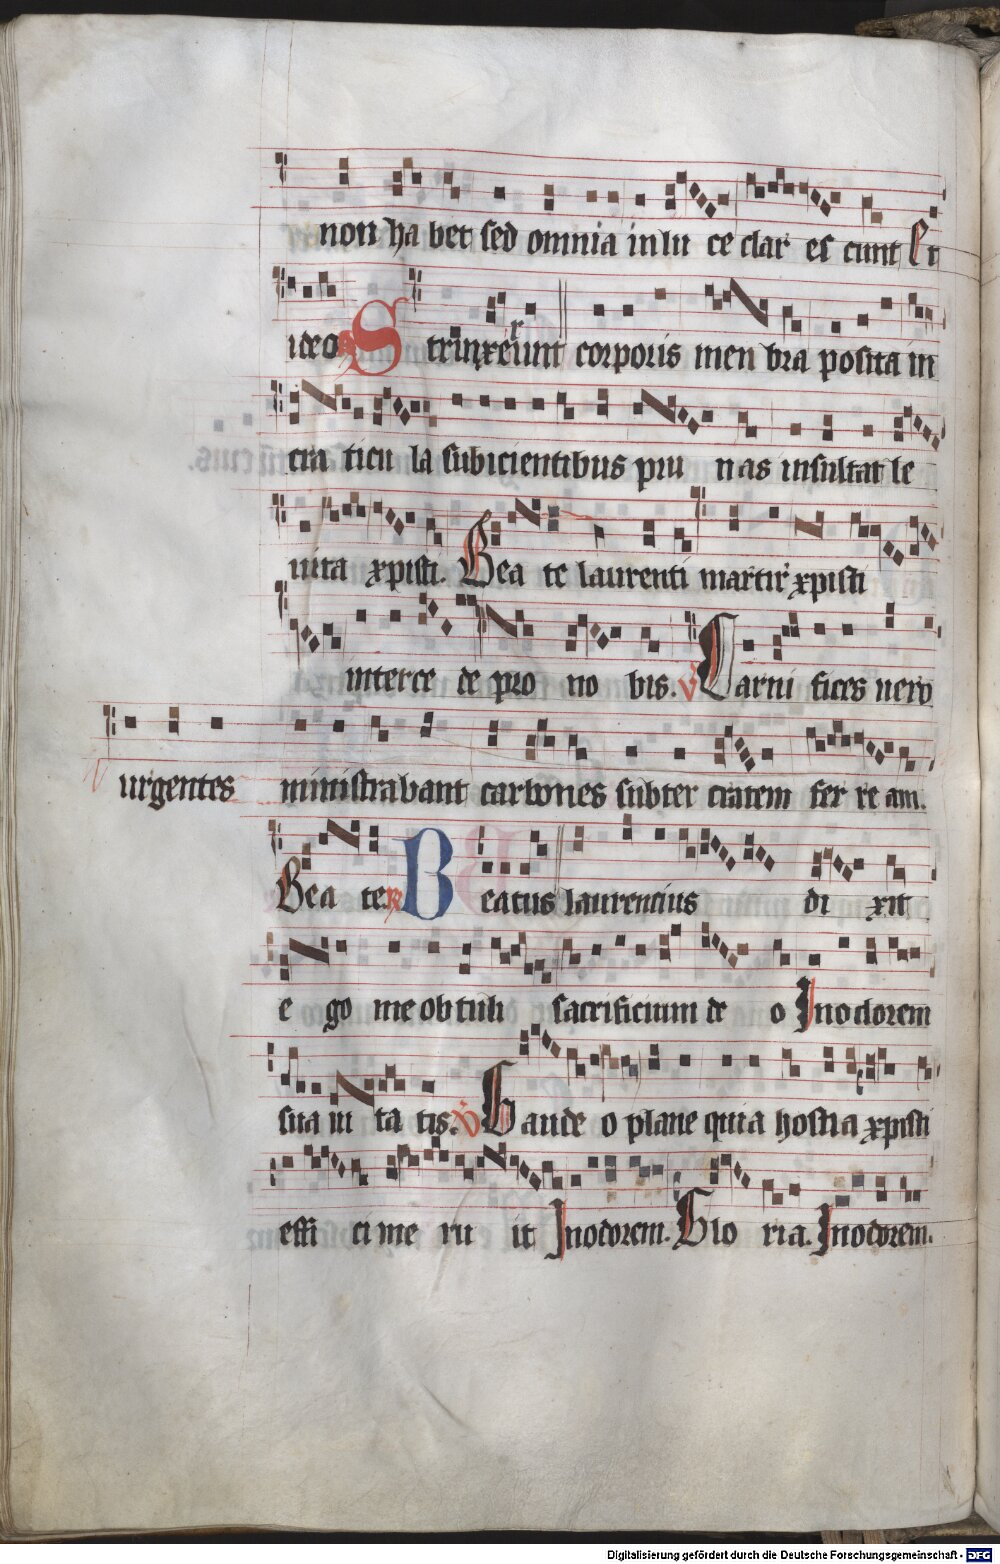 non ha bet sed omnia in lu ce clar es cunt Et
ideo R Strinxerunt corporis men bra posita in
cra ticu la subicientibus pru nas insultat le
uita xpisti. Bea te laurenti martir xpisti
interce de pro no bis. V Carni fices uero
urgentes ministrabant carbones subter cratem fer re am.
Bea te. R Beatus laurencius di xit
e go me obtuli sacrificium de o In odorem
sua ui ta tis. V Gaude o plane quia hostia xpisti
effi ci me ru it In odorem. Glo ria. In odorem.
Digitalisierung gefördert durch die Deutsche Forschungsgemeinschaft - DFG